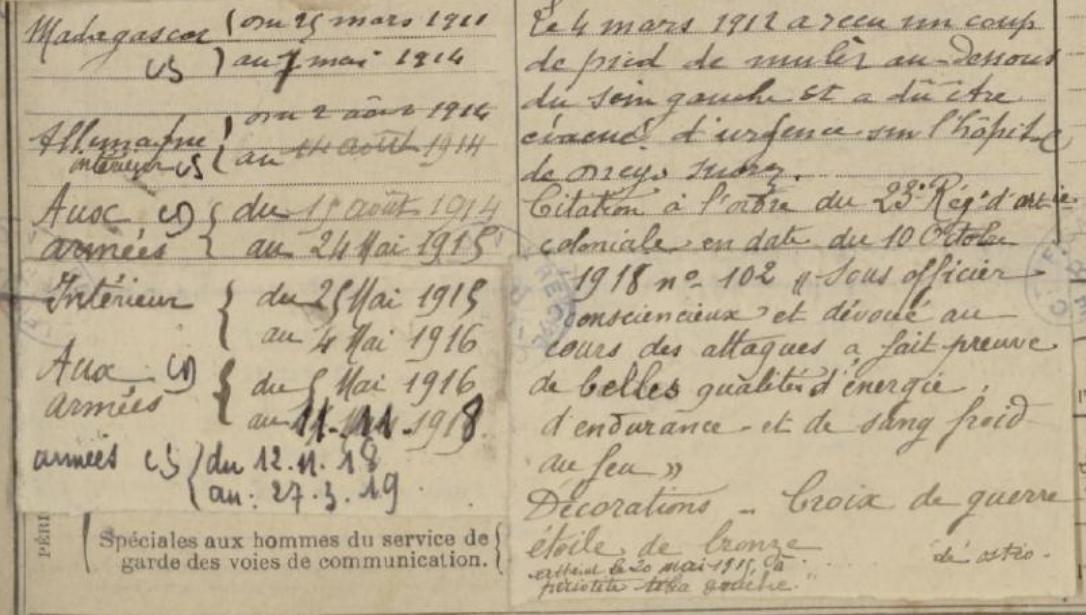 Madagascar CS { du 25 mars 1911
au 7 mai 1914
Allemagne { du 2 août 1914
intérieur CS au 14 août 1914
Aux CS { du 15 août 1914
armées au 24 Mai 1915
Intérieur { du 25 Mai 1915
au 4 Mai 1916
Aux CS { du 5 Mai 1916
armées au 11.11.1918
armées CS { du 12.11.18
au: 27.3.19.
PÉRI
Spéciales aux hommes du service de
garde des voies de communication.
Le 4 mars 1912 a recu un coup
de pied de mulèr au-dessous
du sein gauche et a dû être
évacué d'urgence sur l'hôpital
de
Citation à l'ordre du 23e Régt d'artie
coloniale en date du 10 Octobre
1918 no 102 " Sous officier
consciencieux et dévoué au
cours des attaques a fait preuve
de belles qualités d'énergie,
d'endurance et de sang froid
au feu »
Décorations - Croix de guerre
étoile de bronze
atteint le 20 mai 1915, à
tibia gauche."